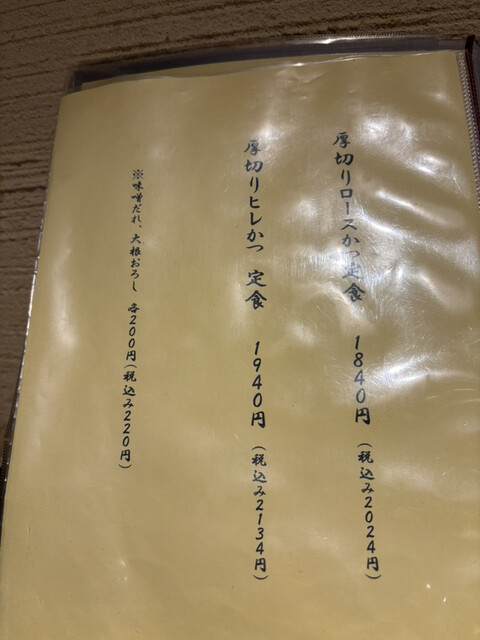 厚切りロースかつ定食 1840円 (税込み2024円)
厚切りヒレかつ 定食 1940円 (税込み2134円)
※味噌だれ、大根おろし 各200円(税込み220円)